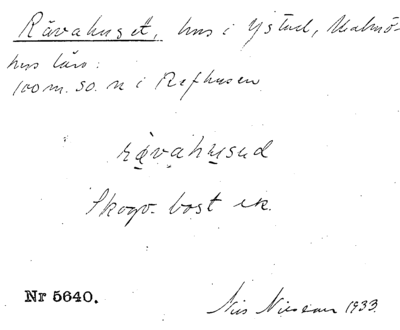 Rävahuset, hus i Ystad, Malmö-
hus län.
100 m. so. n i Refhusen
rävahusud
Skogv. bost
Nr 5640.
Nils Nilsson 1933.